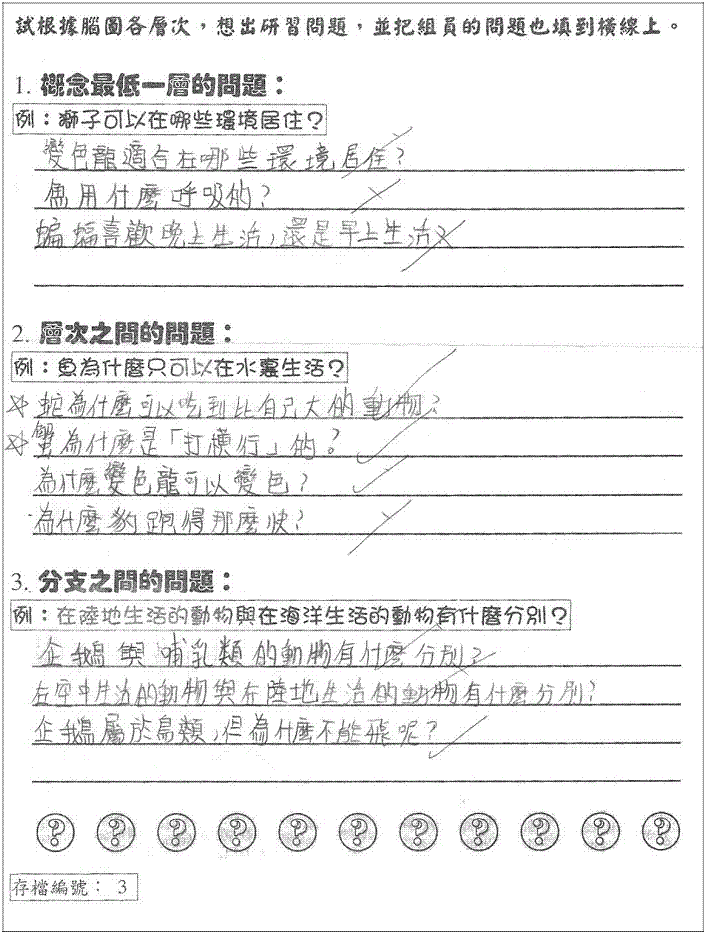 試根據腦圖各層次，想出研習問題，並把組員的問題也填到橫線上。
1. 概念最低一層的問題：
例：獅子可以在哪些環境居住？
變色龍適合在哪些環境居住？
魚用什麼呼吸的？
蝙蝠喜歡晚上生活，還是早上生活？
2. 層次之間的問題：
例：魚為什麼只可以在水裏生活？
☆ 蛇為什麼可以吃到比自己大的動物？
☆ 蟹為什麼是「打橫行」的？
為什麼變色龍可以變色？
為什麼豹跑得那麼快？
3. 分支之間的問題：
例：在陸地生活的動物與在海洋生活的動物有什麼分別？
企鵝與哺乳類的動物有什麼分別？
在空中生活的動物與在陸地生活的動物有什麼分別？
企鵝屬於鳥類，但為什麼不能飛呢？
? ? ? ? ? ? ? ? ? ? ?
存檔編號： 3